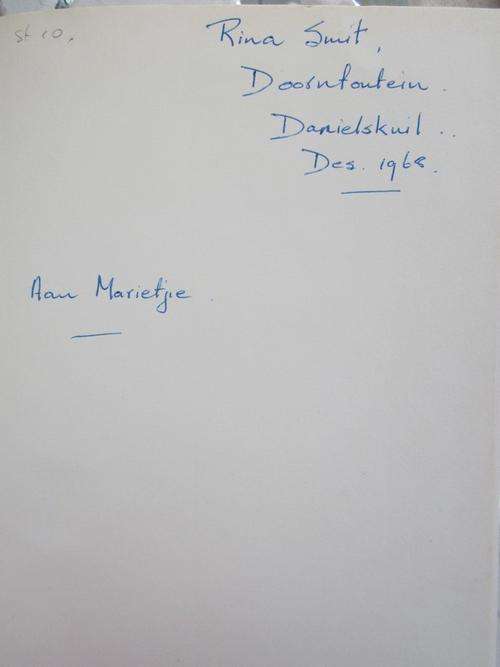 St 10.
Rina Smit,
Doornfontein.
Danielskuil..
Des. 1968.
Aan Marietjie.